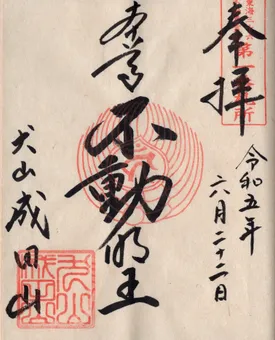 奉拝
令和五年
六月二十二日
本尊
不動明王
犬山成田山